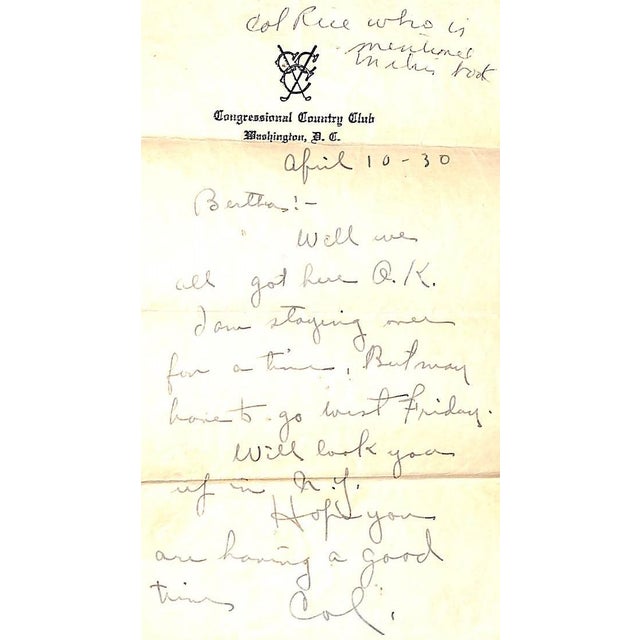 Col Rice who is
mentioned
in this book
CCC
Congressional Country Club
Washington, D. C.
April 10-30
Bertha!-
Well we
all got here O.K.
I am staying over
for a time, But may
have to go west Friday.
Will look you
up in N.Y.
Hope you
are having a good
time Col.